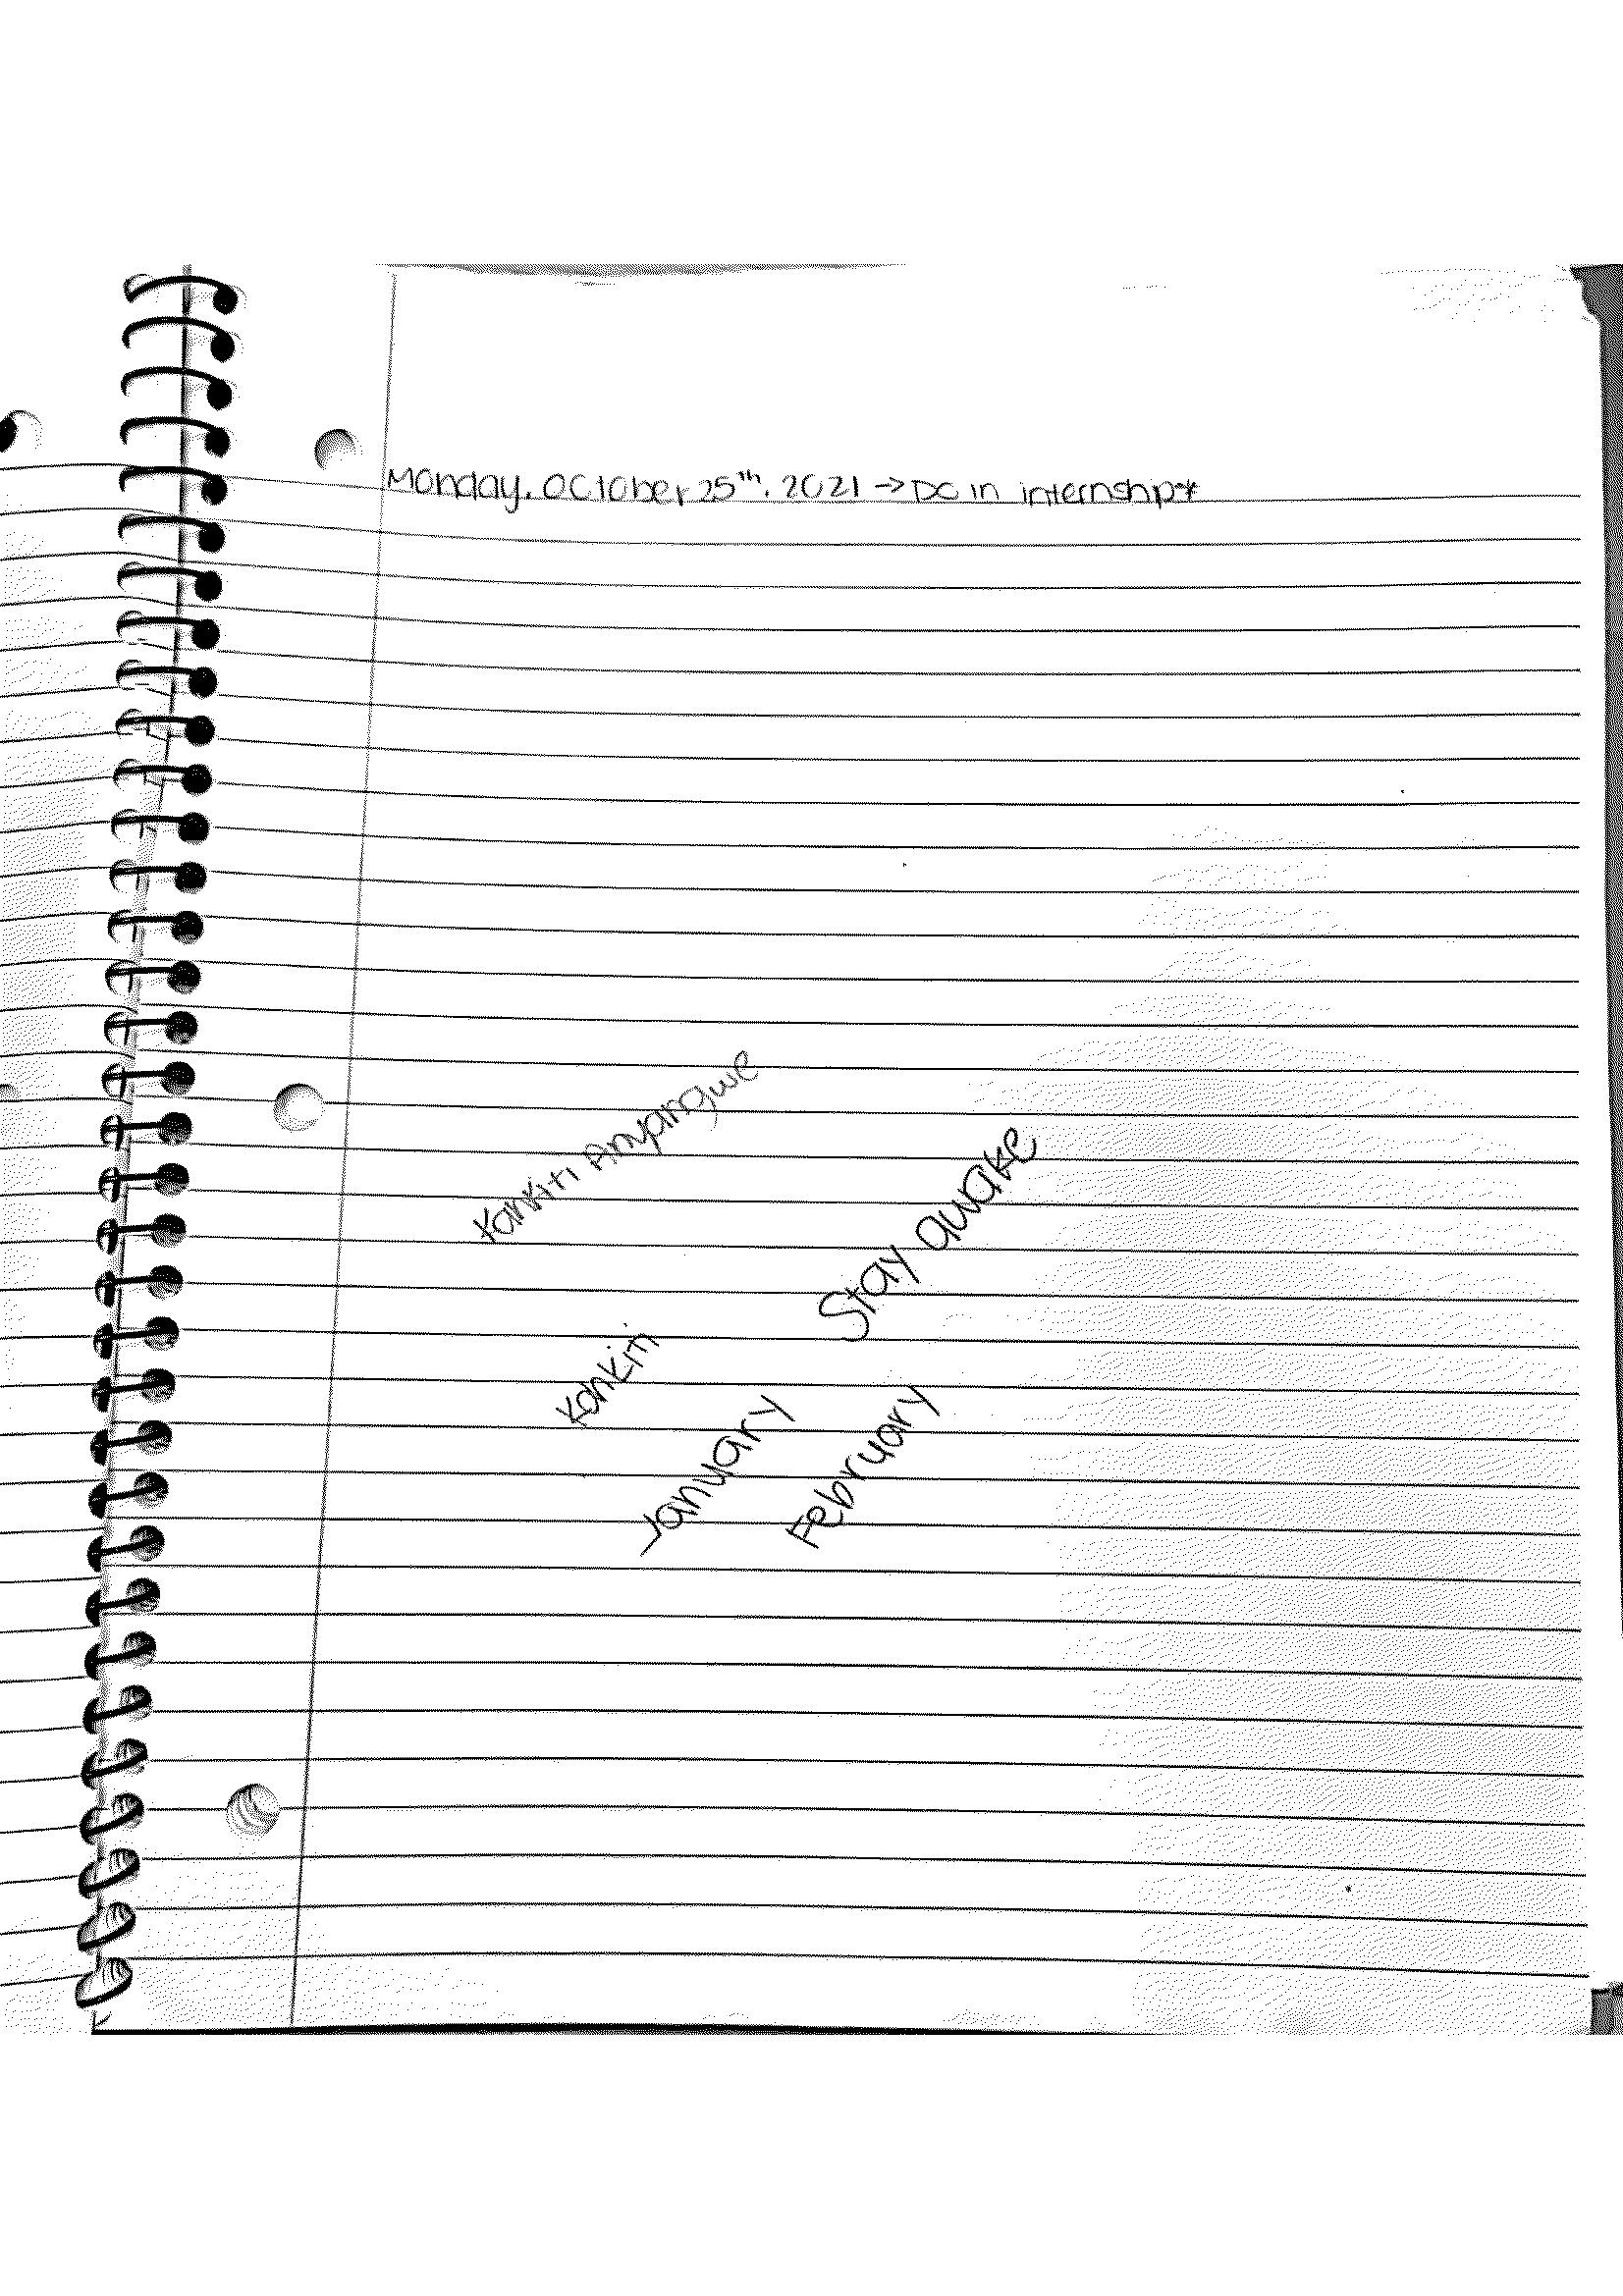 Monday, October 25th, 2021 → DC in internship*
Kankiti Anyangwe
Stay awake
Kankiti
January
February